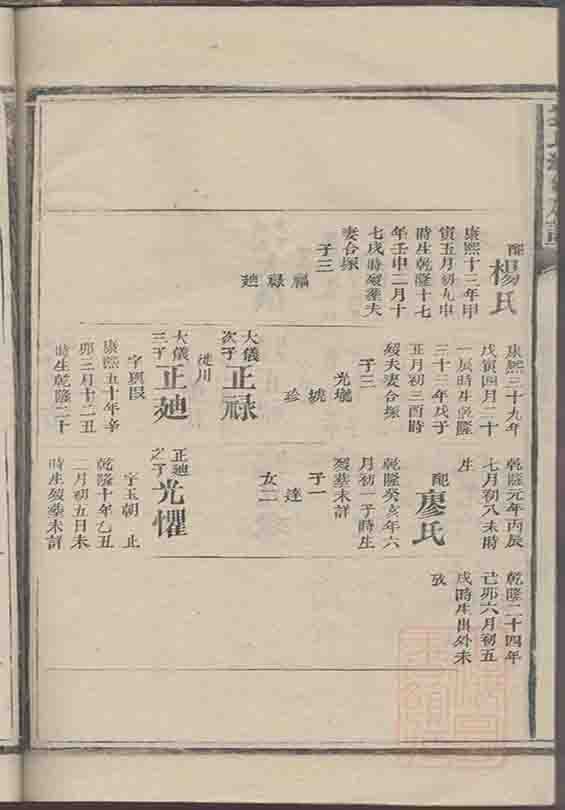 配楊氏
康熙十三年甲
寅五月初九申
時生乾隆十七
年壬申二月十
七戌時歿葬夫
妻合塚
子三
福
祿
廸
康熙三十九年
戊寅四月二十
一辰時生乾隆
三十三年戊子
五月初三酉時
歿夫妻合塚
子三
光
珧
珍
大儀次子正祿
徙川
大儀三子正廸
字興
康熙五十年辛
卯三月十二丑
時生乾隆二十
乾隆元年丙辰
七月初八未時
生
配廖氏
乾隆癸亥年六
月初一子時生
歿葬未詳
子一
達
女二
正廸之子光懼
字玉朝 止
乾隆十年乙丑
二月初五日未
時生歿葬未詳
乾隆二十四年
己卯六月初五
戌時生出外未
攷